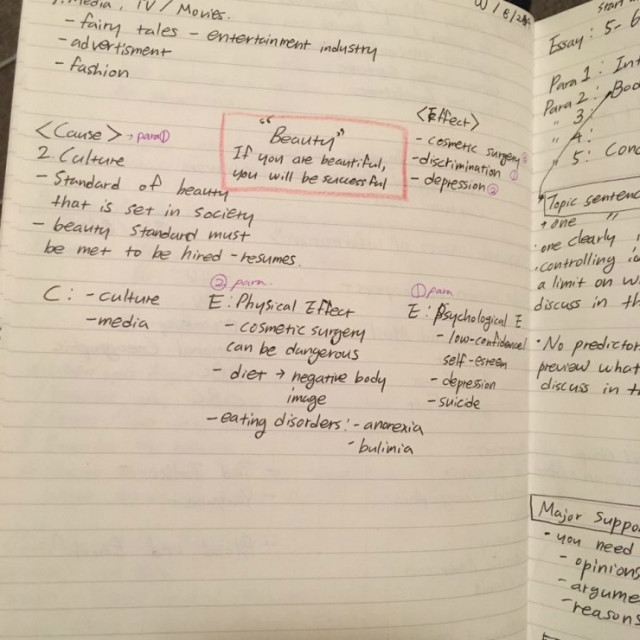 Media, TV / Movies.
- fairy tales - entertainment industry
- advertisment
- fashion
<Cause> → para①
2. Culture
- Standard of beauty
that is set in society
- beauty standard must
be met to be hired - resumes.
"Beauty"
If you are beautiful,
you will be successful
<Effect>
- cosmetic surgery
- discrimination ①
- depression ②
C: - culture
- media
② para.
E: Physical Effect
- cosmetic surgery
can be dangerous
- diet → negative body
image
- eating disorders: - anorexia
- bulimia
① para
E: Psychological E
- low-confidence/
self-esteen
- depression
- suicide
Essay: 5-6
Para 1: Int
Para 2: Bod
" 3
" 4:
" 5: Conc
Topic sentenc
+ one "
· one clearly
· controlling
a limit on
discuss in th
· No predictor
preview what
discuss in th
Major Suppo
- you need
- opinions
- argume
- reasons